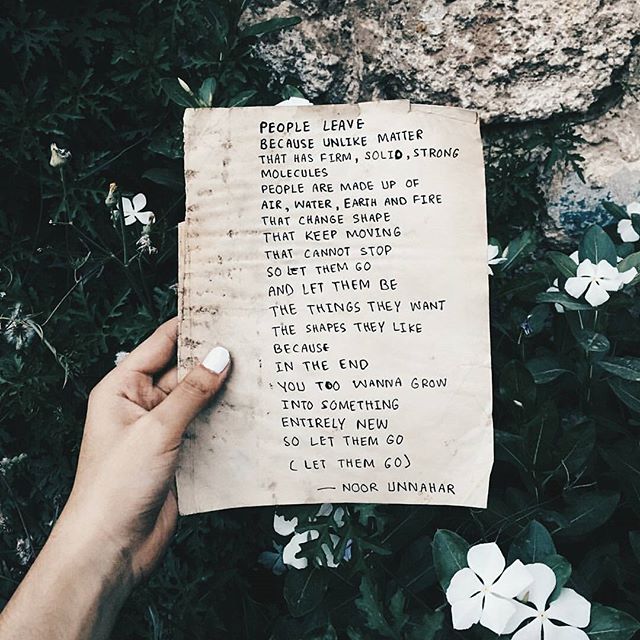 PEOPLE LEAVE
BECAUSE UNLIKE MATTER
THAT HAS FIRM, SOLID, STRONG
MOLECULES
PEOPLE ARE MADE UP OF
AIR, WATER, EARTH AND FIRE
THAT CHANGE SHAPE
THAT KEEP MOVING
THAT CANNOT STOP
SO LET THEM GO
AND LET THEM BE
THE THINGS THEY WANT
THE SHAPES THEY LIKE
BECAUSE
IN THE END
YOU TOO WANNA GROW
INTO SOMETHING
ENTIRELY NEW
SO LET THEM GO
(LET THEM GO)
— NOOR UNNAHAR